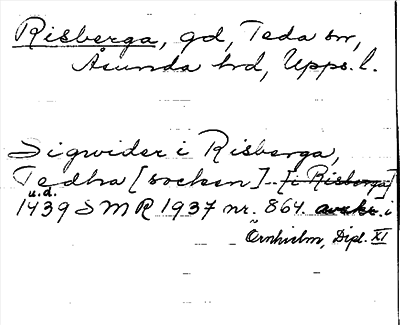 Risberga, gd, Teda sn,
Åsunda hd, Upps. l.
Sigwider i Risberga,
Tedha [socken]. [i Risberga]
u.d.
1439 SMR 1937 nr. 864. avskr. i
Örnhielm, Dipl. XI